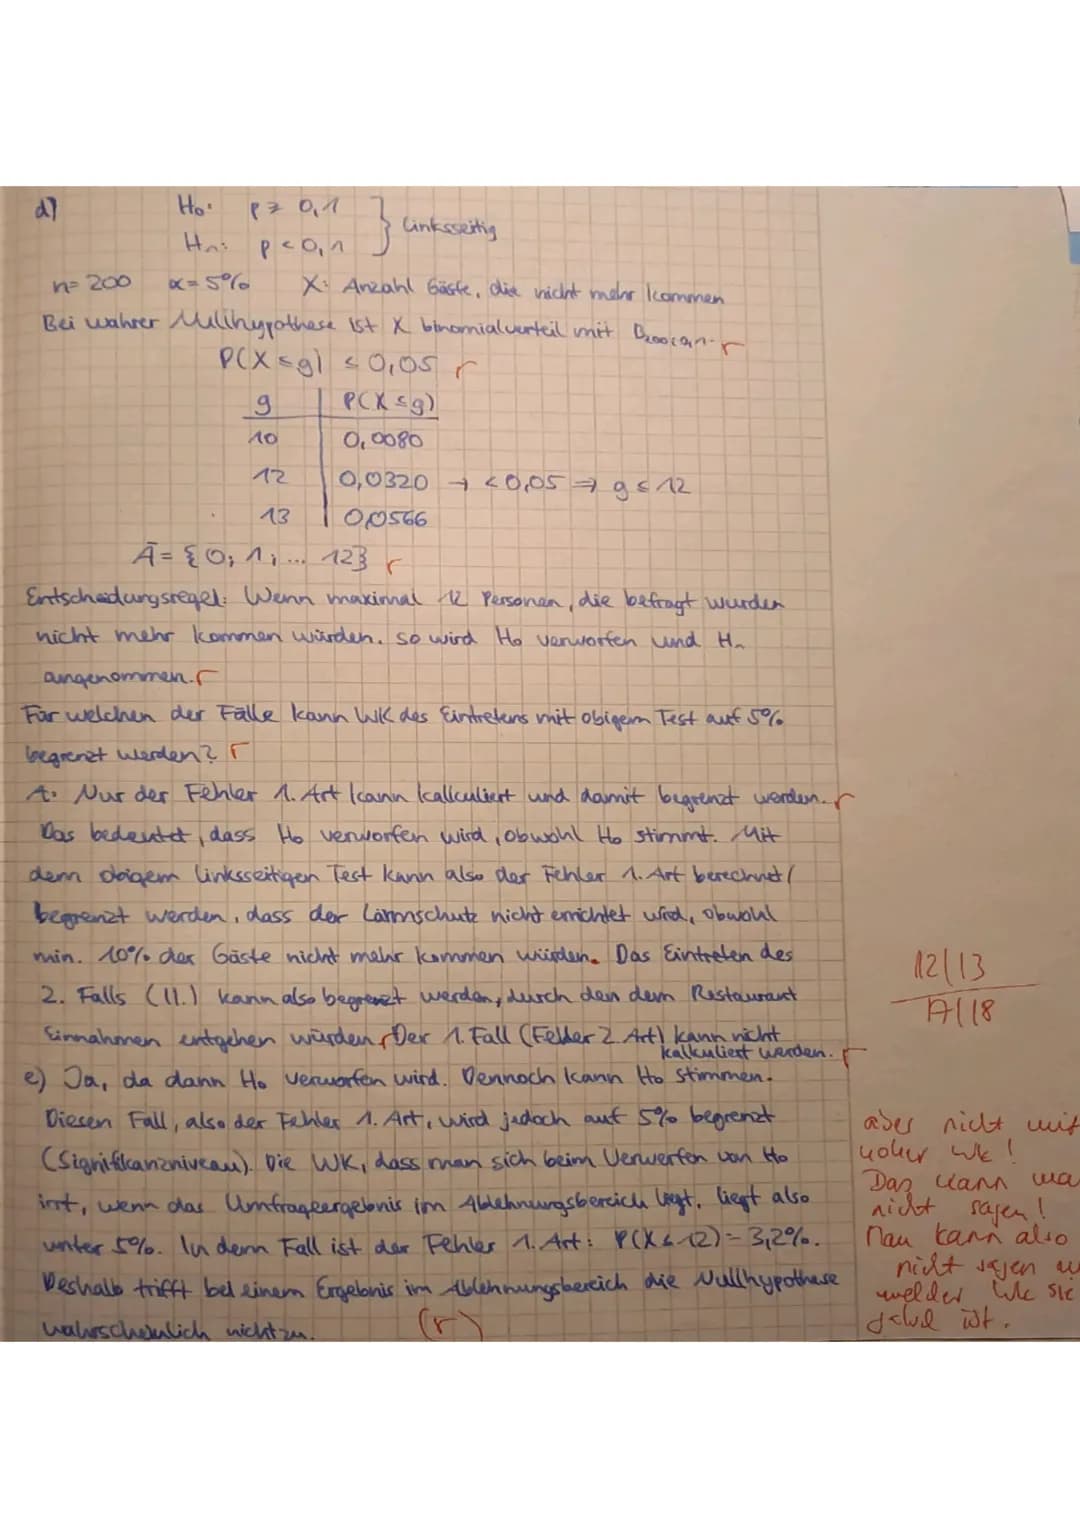 d)
H₀: p ≥ 0,1
H₁: p < 0,1 } Linksseitig
n = 200 α = 5% X: Anzahl Gäste, die nicht mehr kommen
Bei wahrer Nullhypothese ist X binomialverteil mit B₂₀₀;₀,₁. r
P(X ≤ g) ≤ 0,05 r
g | P(X ≤ g)
10 | 0,0080
12 | 0,0320 → < 0,05 ⇒ g ≤ 12
13 | 0,0566
Ā = {0; 1; ... 12} r
Entscheidungsregel: Wenn maximal 12 Personen, die befragt wurden
nicht mehr kommen würden, so wird H₀ verworfen und H₁
angenommen. r
Für welchen der Fälle kann WK des Eintretens mit obigem Test auf 5%
begrenzt werden? r
A: Nur der Fehler 1. Art kann kalkuliert und damit begrenzt werden. r
Das bedeutet, dass H₀ verworfen wird, obwohl H₀ stimmt. Mit
dem obigem linksseitigen Test kann also der Fehler 1. Art berechnet/
begrenzt werden, dass der Lärmschutz nicht errichtet wird, obwohl
min. 10% der Gäste nicht mehr kommen würden. Das Eintreten des
2. Falls (II.) kann also begrenzt werden, durch den dem Restaurant
Einnahmen entgehen würden. r Der 1. Fall (Fehler 2. Art) kann nicht
kalkuliert werden. r
12/13
17/18
e) Ja, da dann H₀ verworfen wird. Dennoch kann H₀ stimmen.
Diesen Fall, also der Fehler 1. Art, wird jedoch auf 5% begrenzt
(Signifikanzniveau). Die WK, dass man sich beim Verwerfen von H₀
irrt, wenn das Umfrageergebnis im Ablehnungsbereich liegt, liegt also
unter 5%. In dem Fall ist der Fehler 1. Art: P(X ≤ 12) = 3,2%.
Deshalb trifft bei einem Ergebnis im Ablehnungsbereich die Nullhypothese
wahrscheinlich nicht zu. (r)
aber nicht mit
hoher Wk!
Das kann ma
nicht sagen!
Man kann also
nicht sagen
welcher Wk sie
ist.